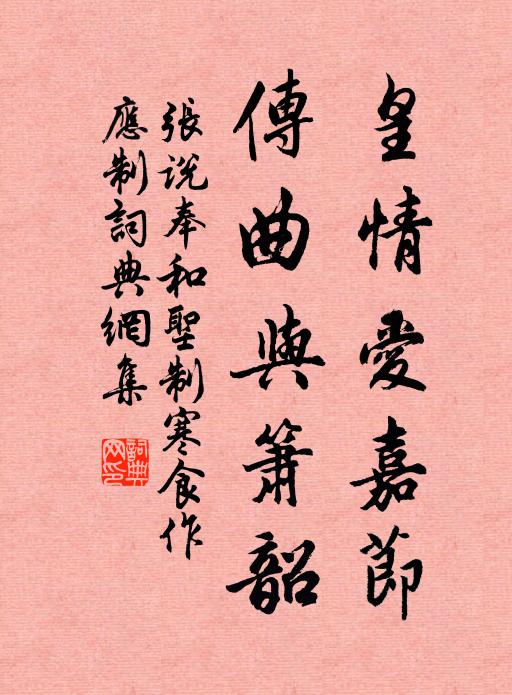 皇情愛嘉節
傳曲與簫韶
張説奉和聖制寒食作
應制詞典網集
詞典網印